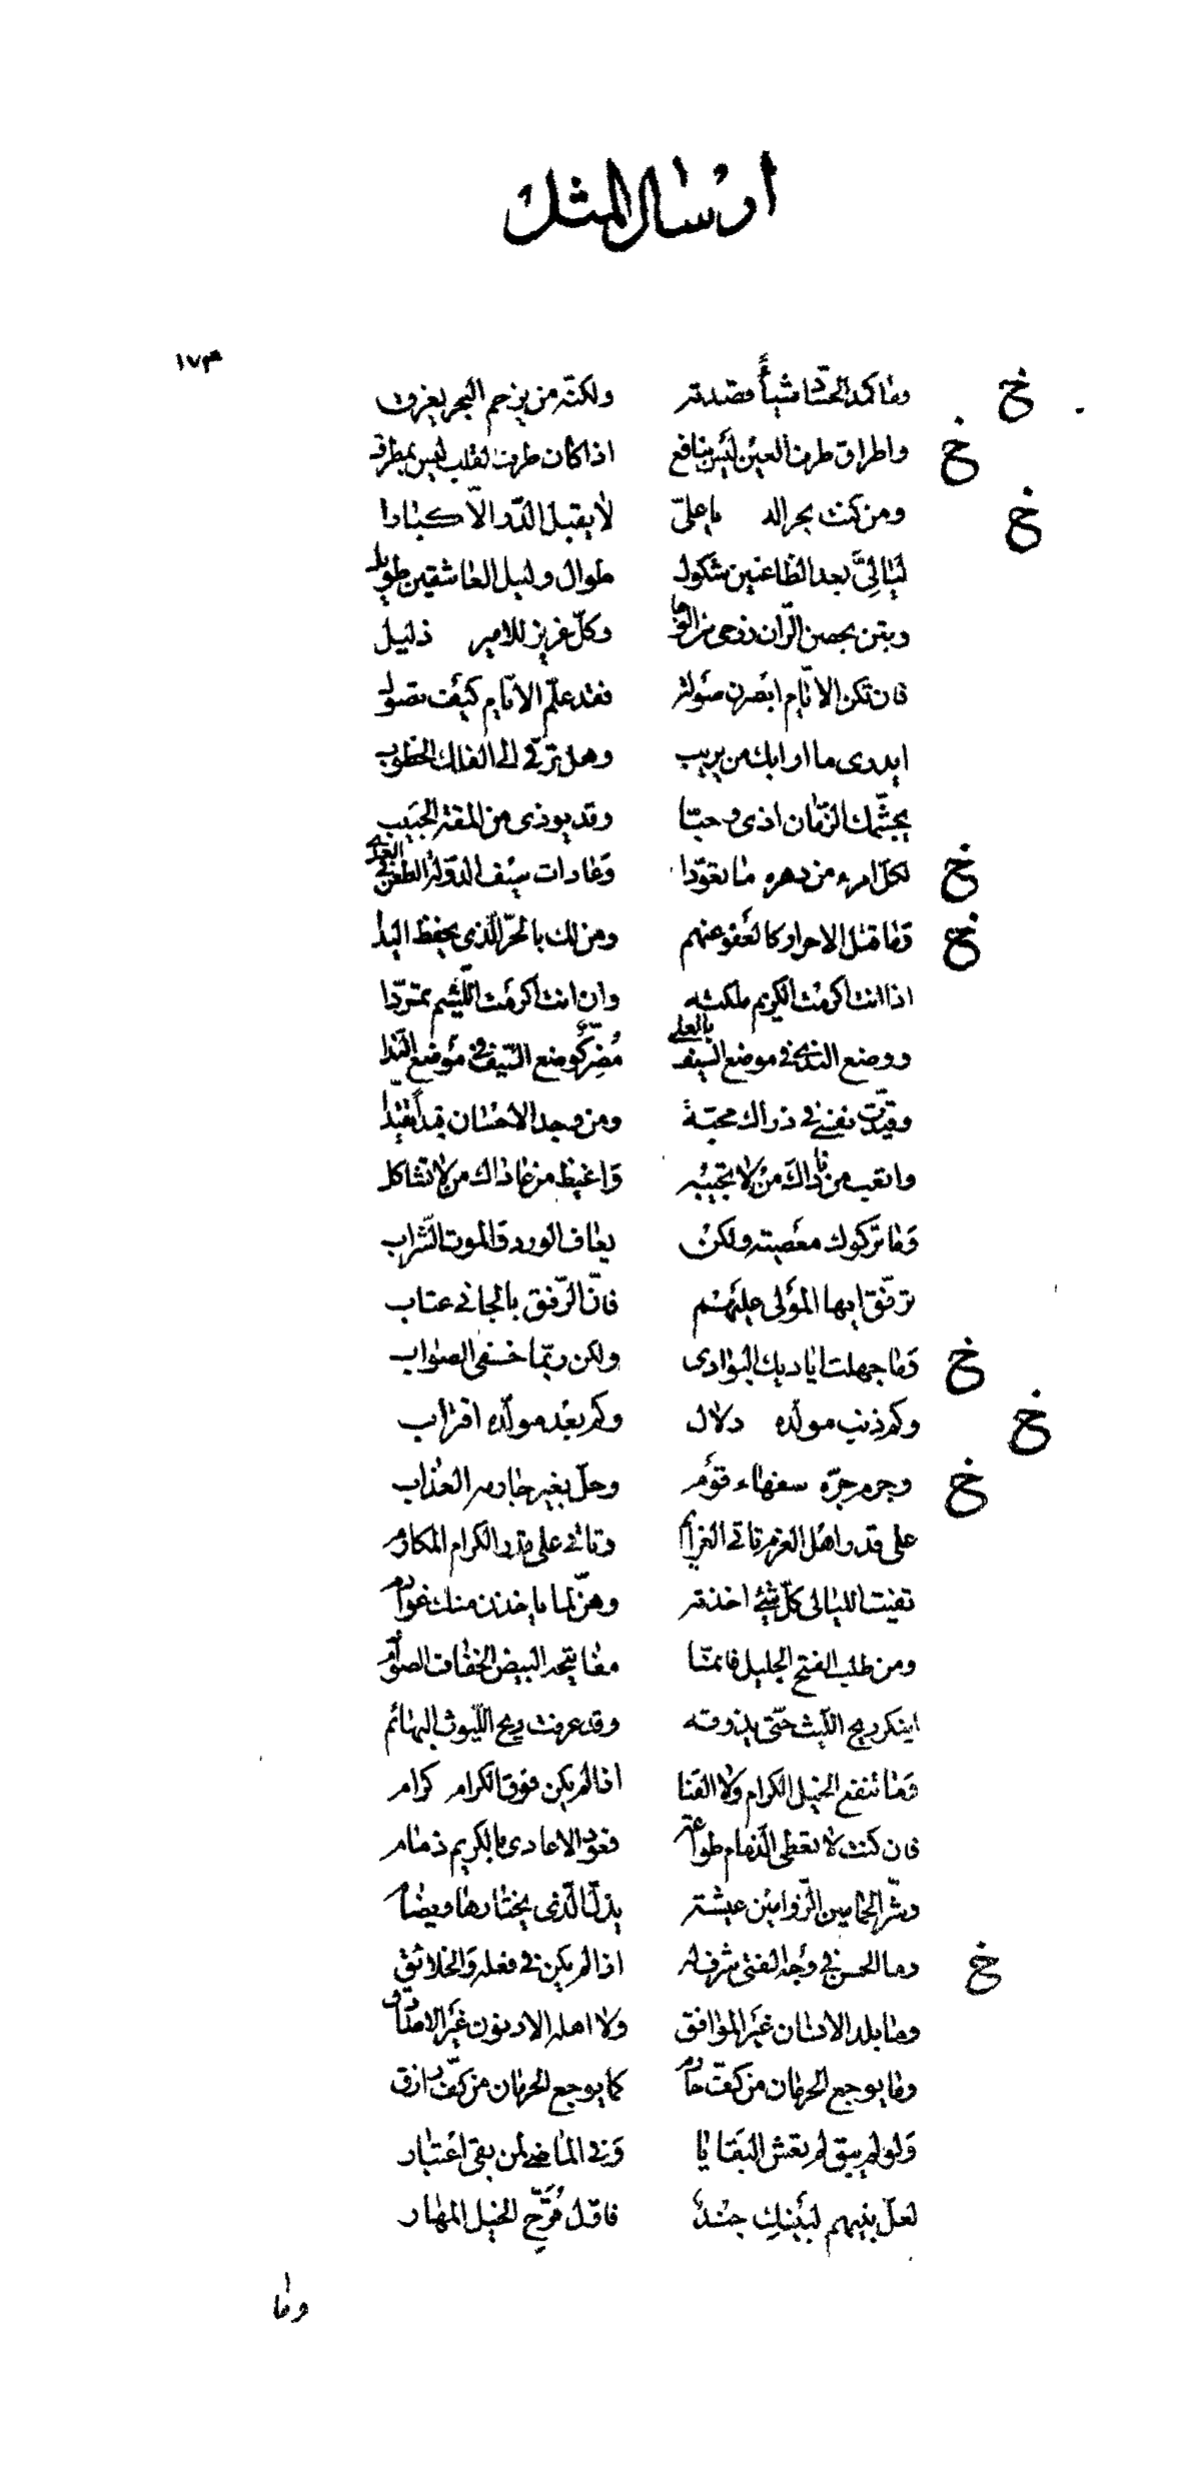 ارسال المثل
١٧٣
خ وما كمد الحسّاد شيأً قصدته ولكنّه من يزحم البحر يغرق
خ واطراق طرف العين ليس بنافع اذا كان طرف القلب ليس بمطرق
خ ومن كنت بحرا له يا عليّ لا يقبل الدّر الّا كبارا
لياليَّ بعد الظاعنين شكول طوال وليل العاشقين طويل
وبتن بحصن الرّان رزحى من الوجا وكلّ عزيز للامير ذليل
فان تكن الايّام ابصرن صولة فقد علّم الايّام كيف تصول
ايدرى ما ارابك من يريب وهل ترقى الى الفلك الخطوب
يجشّمك الزّمان اذى وحبّا وقد يوذى من المقة الحبيب
خ لكلّ امرء من دهره ما تعوّدا وعادات سيف الدّولة الطعن فى العدى
خ وما قتل الاحرار كالعفو عنهم ومن لك بالحرّ الّذى يحفظ اليدا
اذا انت اكرمت الكريم ملكته وان انت اكرمت اللّئيم تمرّدا
ووضع الندى فى موضع السيف بالعلى مُضِرٌّ كوضع السّيف فى موضع النّدا
وقيّدت نفسى فى ذراك محبّة ومن وجد الاحسان قيداً تقيّدا
واتعب من ناداك من لا تجيبه واغيظ من عاداك من لا تشاكل
وما تركوك معصية ولكن يعاف الورد والموت الشّراب
ترفّق ايها المولى عليهم فانّ الرّفق بالجانى عتاب
خ وما جهلت اياديك البوادى ولكن ربّما خفى الصواب
خ وكم ذنب مولّده دلال وكم بعد مولّده اقتراب
خ وجرم جرّه سفهاء قوم وحلّ بغير جارمه العذاب
على قدر اهل العزم تاتى العزايم وتاتى على قدر الكرام المكارم
تفيت الليالى كلّ شئ اخذته وهنّ لما ياخذن منك غوارم
ومن طلب الفتح الجليل فانمّا مفاتيحه البيض الخفاف الصوارم
اينكر ريح الليث حتّى يذوقه وقد عرفت ريح اللّيوث البهائم
وما تنفع الخيل الكرام ولا القنا اذا لم يكن فوق الكرام كرام
فان كنت لا تعطى الذمام طواعة فعوذ الاعادى بالكريم ذمام
وشّر الحمامين الزّوامين عيشة يذلّ الّذى يختارها ويضام
خ وما الحسن فى وجه الفتى شرف له اذا لم يكن فى فعله والخلائق
وما بلد الانسان غير الموافق ولا اهله الادنون غير الاصادق
وما يوجع الحرمان من كفّ حارم كما يوجع الحرمان من كفّ رازق
ولو لم يبق لم تعش البقايا وفى الماضى لمن بقى اعتبار
لعلّ بنيهم لبنيك جندٌ فاوّل قُرَّح الخيل المهار
وما